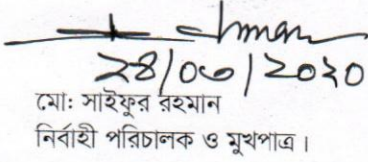 ২৪/০৩/২০২০
মো: সাইফুর রহমান
নির্বাহী পরিচালক ও মুখপাত্র।